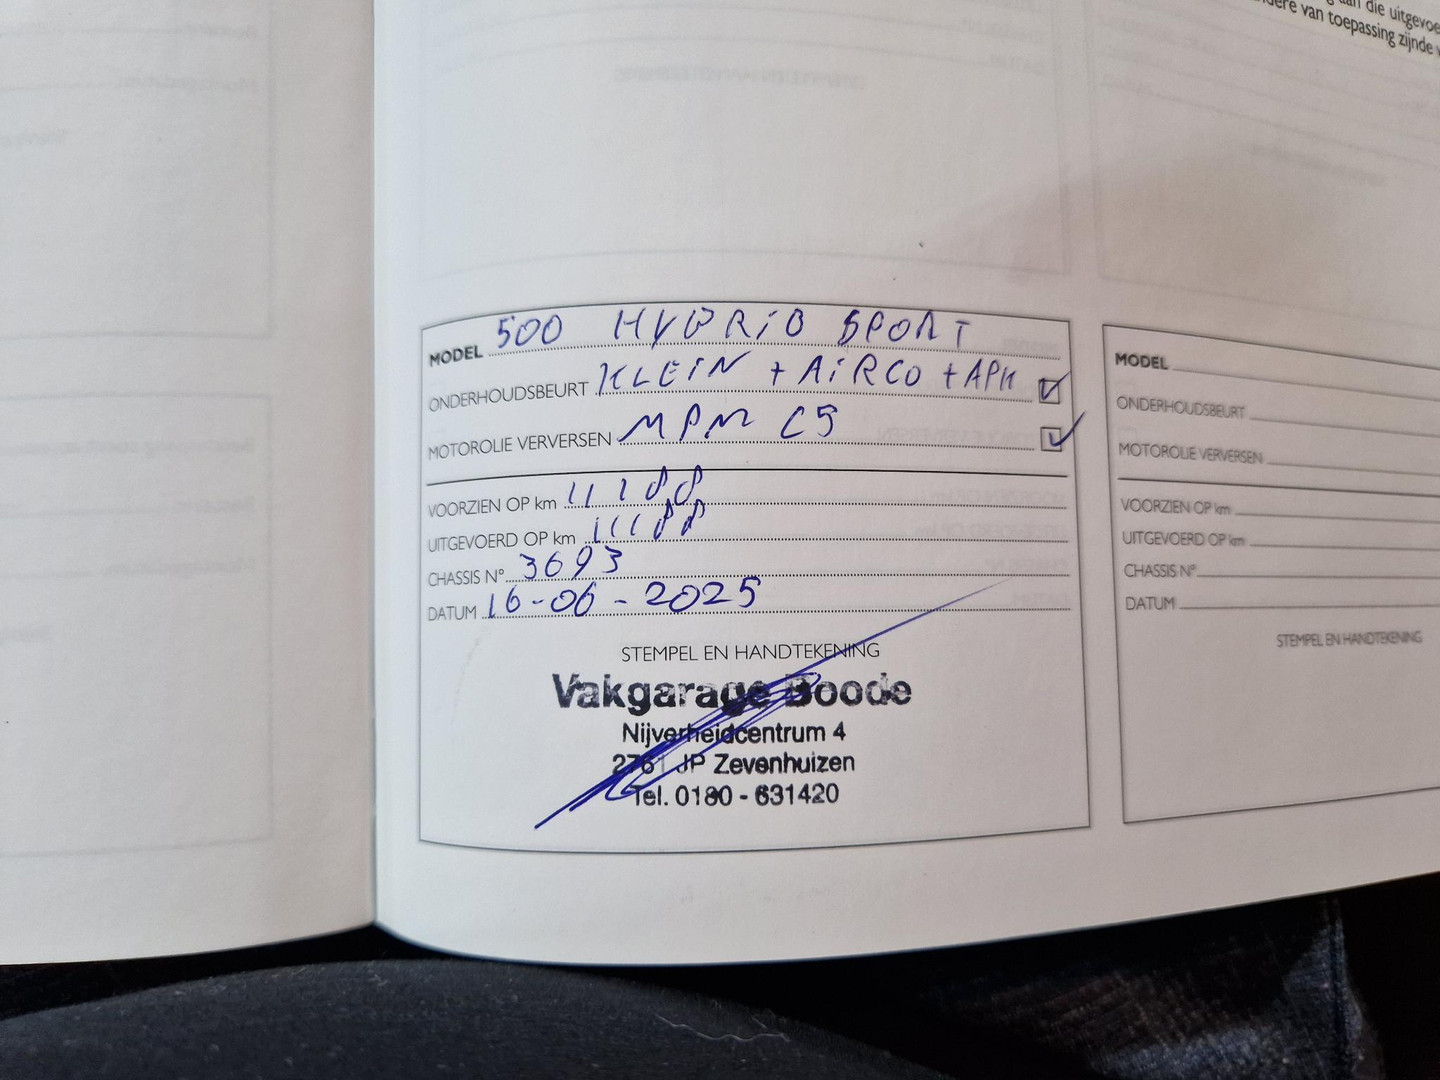 aan die uitgevoe
dere van toepassing zijnde
MODEL 500 HYBRID SPORT
ONDERHOUDSBEURT KLEIN + AIRCO + APK
MOTOROLIE VERVERSEN MPM C5
VOORZIEN OP km 11188
UITGEVOERD OP km 11188
CHASSIS N° 3693
DATUM 16-06-2025
STEMPEL EN HANDTEKENING
Vakgarage Boode
Nijverheidcentrum 4
2761 JP Zevenhuizen
Tel. 0180 - 631420
MODEL
ONDERHOUDSBEURT
MOTOROLIE VERVERSEN
VOORZIEN OP km
UITGEVOERD OP km
CHASSIS N°
DATUM
STEMPEL EN HANDTEKENING